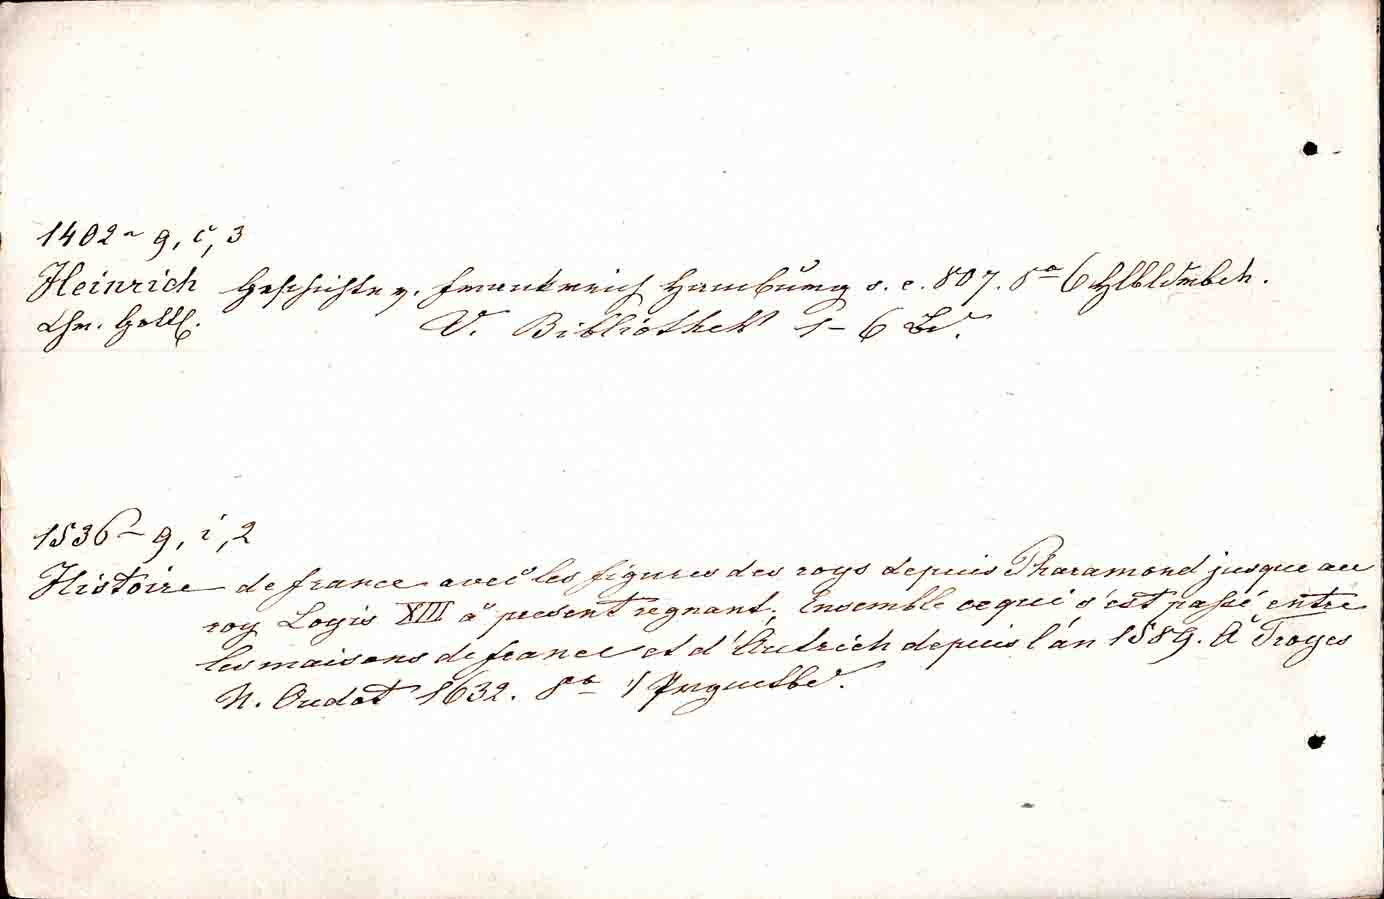 1402~ 9, c, 3
Heinrich Geschichte v. Frankreich Hamburg s. e. 807. 8° 6 Hlbldrbde.
Chr. Gottl. V. Bibliothek 1-6 Bd.
1536~ 9, i, 2
Histoire de france avec les figures des roys depuis Pharamond jusque au
roy Loyis XIII à present regnant; Ensemble ce qui s'est passé entre
les maisons de france et d'Autrich depuis l'án 1589. A Troyes
N. Oudot 1632. 8° 1